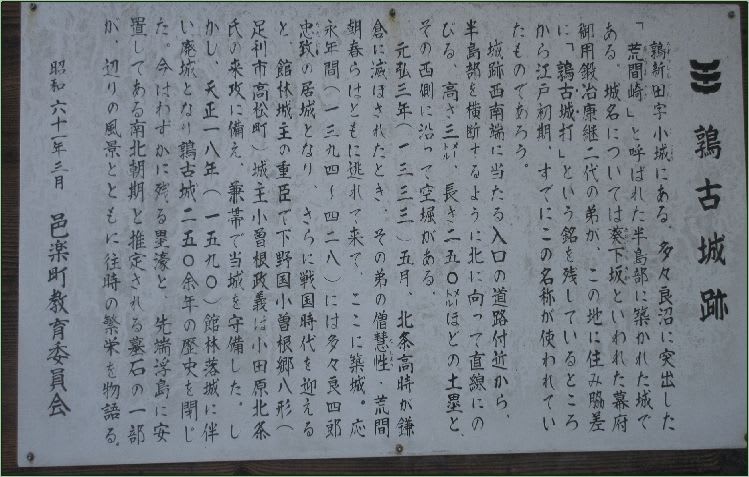 鶉古城跡
鶉新田字小城にある、多々良沼に突出した
「荒間崎」と呼ばれた半島部に築かれた城で
ある 城名については葵下坂といわれた幕府
御用鍛冶康継二代の弟が、この地に住み脇差
に「鶉古城打」という銘を残しているところ
から江戸初期、すでにこの名称が使われてい
たものであろう。
城跡西南端に当たる入口の道路付近から、
半島部を横断するように北に向って直線にの
びる、高さ三メートル、長さ二五〇メートルほどの土塁と、
その西側に沿って空堀がある。
元弘三年（一三三三）五月、北条高時が鎌
倉に滅ぼされたとき、その弟の僧慧性・荒間
朝春らはともに逃れて来て、ここに築城。応
永年間（一三九四〜四二八）には多々良四郎
忠致の居城となり、さらに戦国時代を迎える
と、館林城主の重臣で下野国小曽根郷八形（
足利市高松町）城主小曽根政義は小田原北条
氏の来攻に備え、兼帯で当城を守備した。し
かし 天正一八年（一五九〇）館林落城に伴
い廃城となり鶉古城二五〇余年の歴史を閉じ
た。今はわずかに残る塁濠と、先端浮島に安
置してある南北朝期と推定される墓石の一部
が、辺りの風景とともに往時の繁栄を物語る。
昭和六十一年三月 邑楽町教育委員会